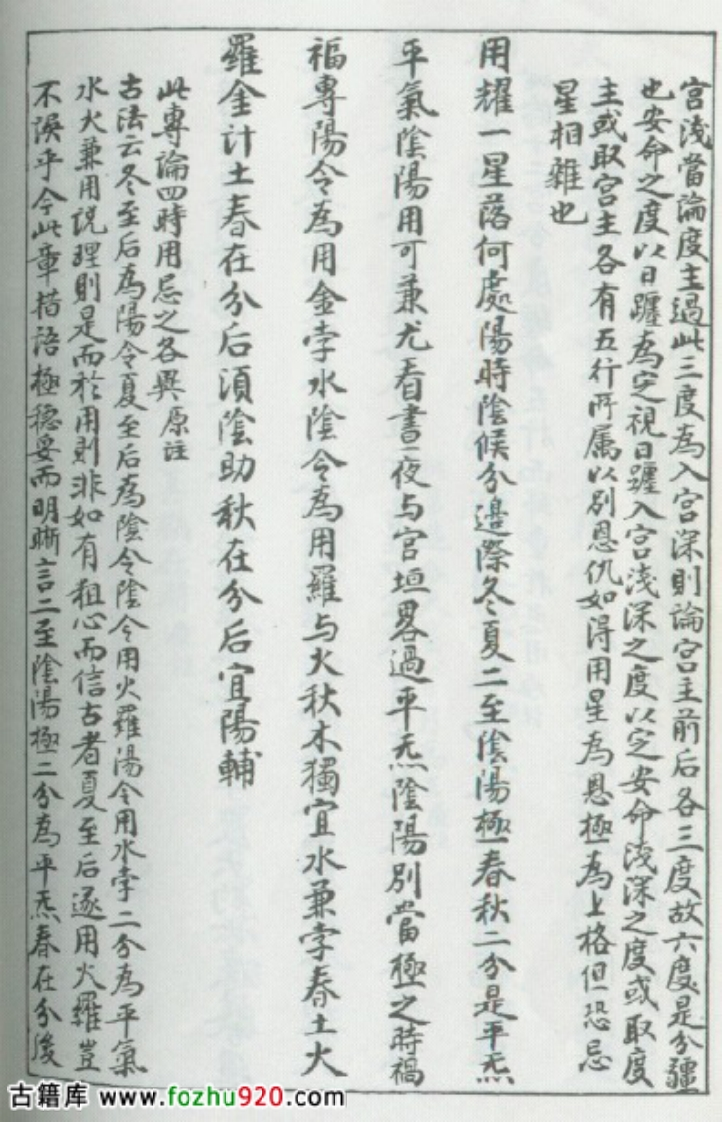 宫淺當論度主過此三度為入宫深則論宫主前后各三度故六度是分疆
也安命之度以日躔為定視日躔入宫淺深之度以定安命淺深之度或取度
主或取宫主各有五行所属以别恩仇如得用星為恩極為上格但恐忌
星相雜也
用耀一星落何處陽時陰候分邊際冬夏二至陰陽極春秋二分是平炁
平氣陰陽用可兼尤看晝夜与宫垣畧過平炁陰陽别當極之時禍
福專陽令為用金孛水陰令為用羅与火秋木獨宜水兼孛春土火
羅金计土春在分后湏陰助秋在分后宜陽輔
此專論四時用忌之各異原注
古法云冬至后為陽令夏至后為陰令陰令用火羅陽令用水孛二分為平氣
水火兼用説理則是而於用則非如有粗心而信古者夏至后遂用火羅豈
不誤乎今此章措語極穩妥而明晰言二至陰陽極二分為平炁春在分後
古籍库 www.fozhu920.com